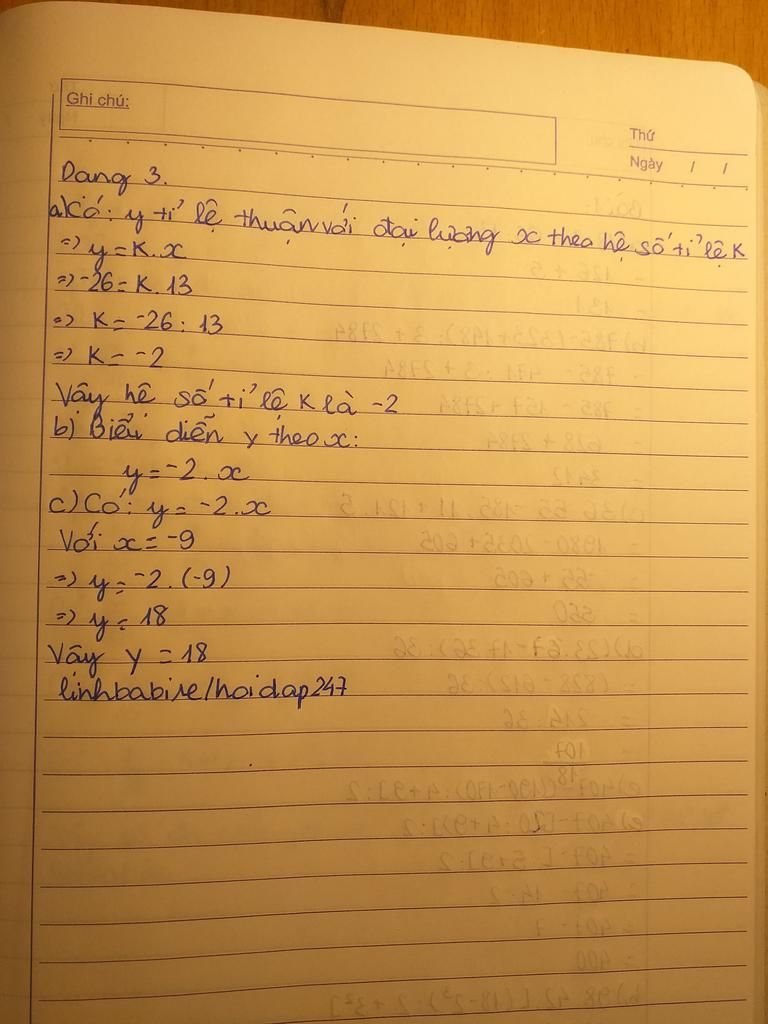 Ghi chú:
Thứ
Ngày / /
Dạng 3.
a) Có: y tỉ lệ thuận với đại lượng x theo hệ số tỉ lệ K
=> y = K.x
=> -26 = K.13
=> K = -26 : 13
=> K = -2
Vậy hệ số tỉ lệ K là -2
b) Biểu diễn y theo x:
y = -2.x
c) Có: y = -2.x
Với x = -9
=> y = -2.(-9)
=> y = 18
Vậy y = 18
linhbabire/hoidap247